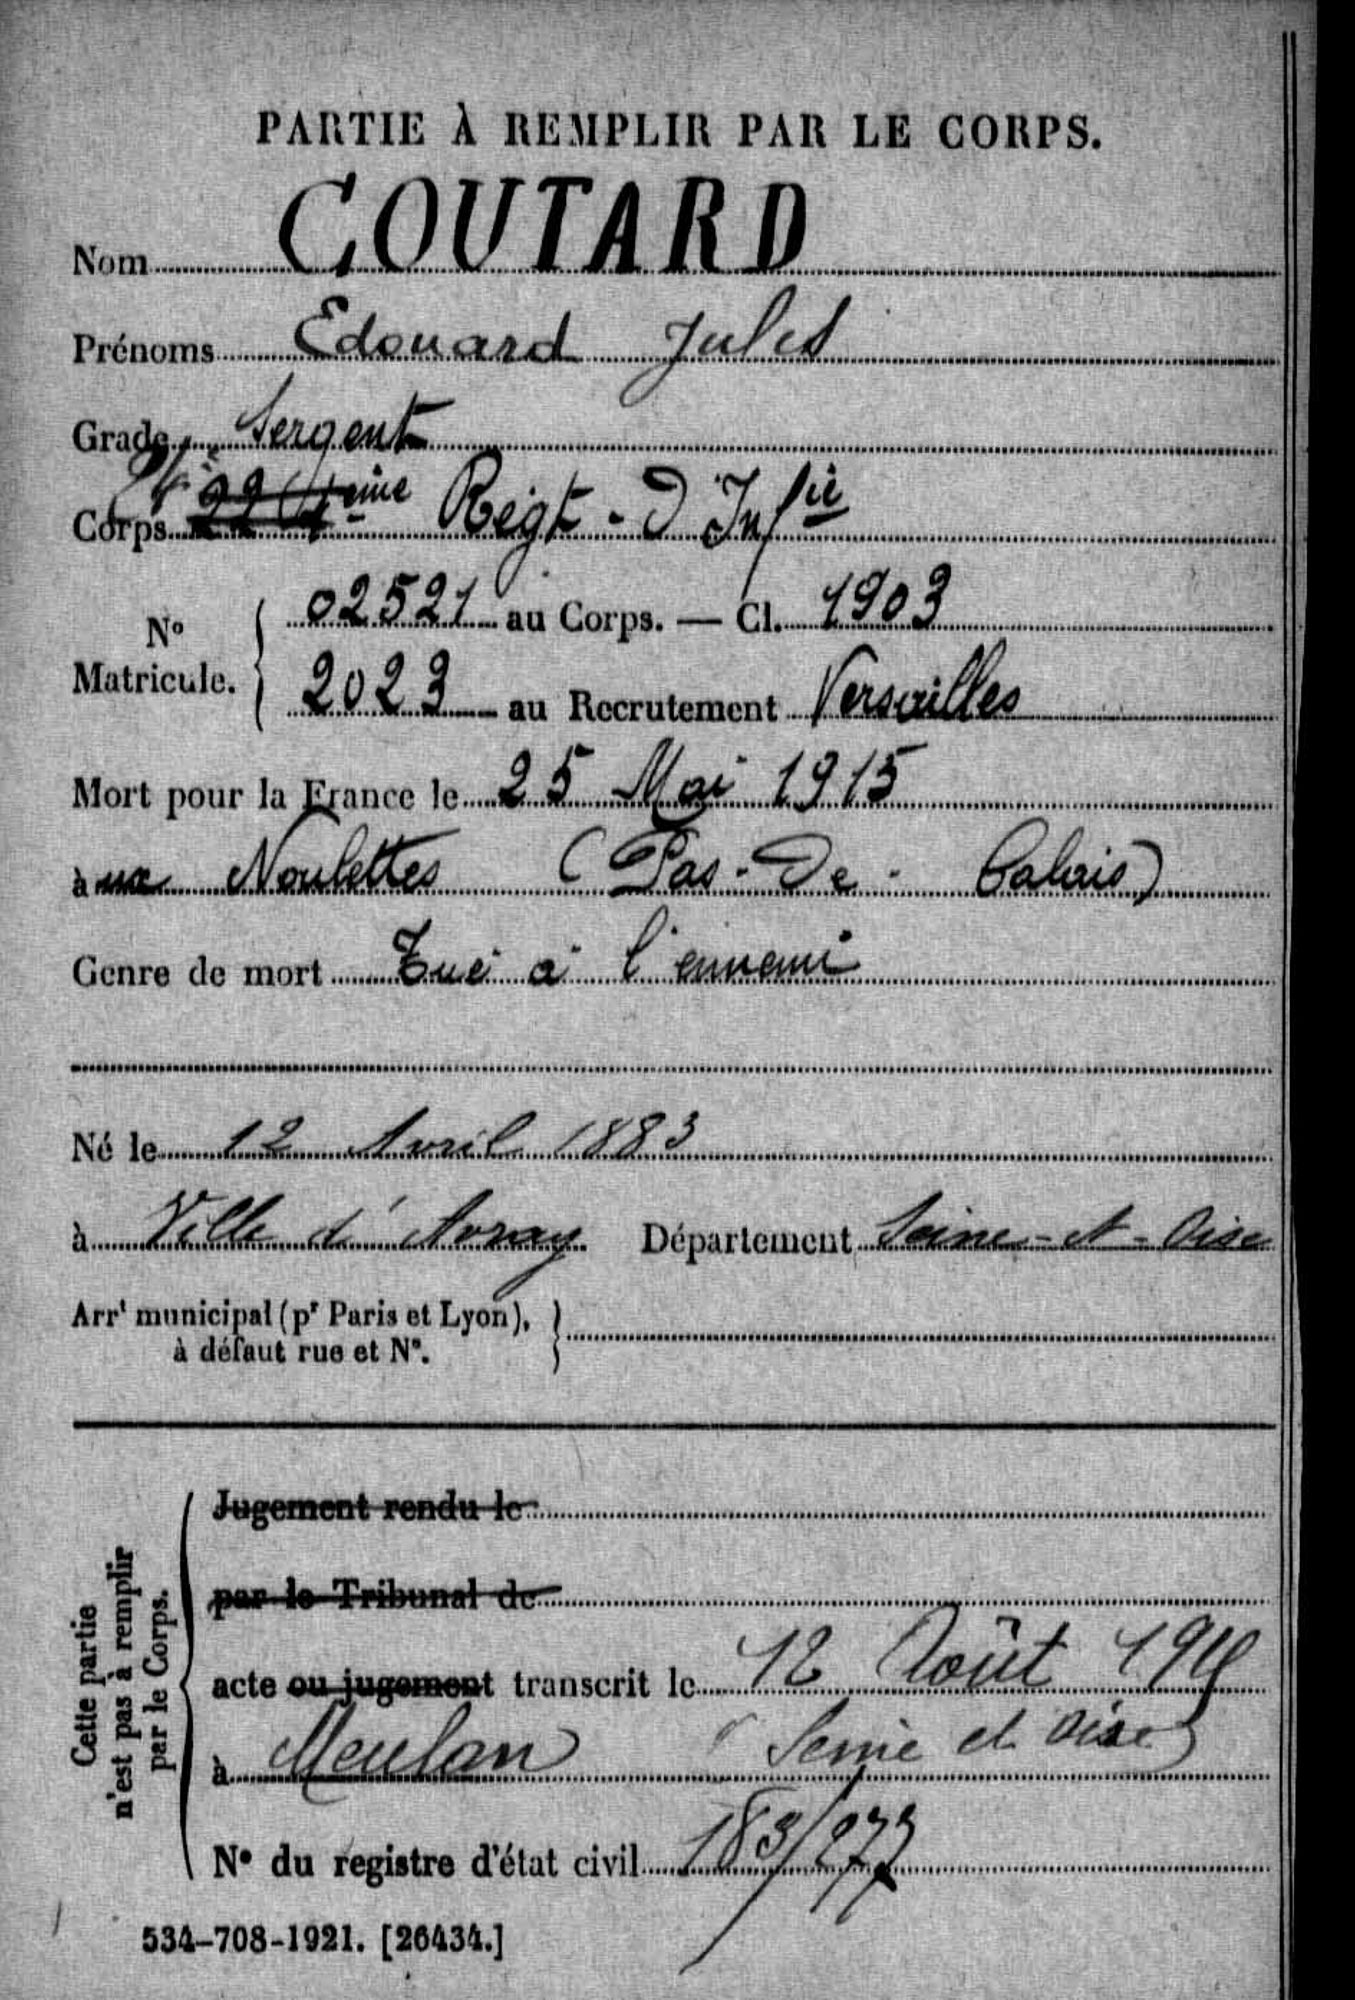 PARTIE À REMPLIR PAR LE CORPS.
Nom COUTARD
Prénoms Edouard Jules
Grade Sergent
Corps 224eme Régt - D'Infie
No Matricule. 02521 au Corps. — Cl. 1903
2023 au Recrutement Versailles
Mort pour la France le 25 Mai 1915
aux Noulettes (Pas-De-Calais)
Genre de mort Tué à l'ennemi
Né le 12 Avril 1883
à Ville d'Avray Département Seine-et-Oise
Arrt municipal (pr Paris et Lyon),
à défaut rue et No.
Cette partie
n'est pas à remplir
par le Corps.
Jugement rendu le
par le Tribunal de
acte ou jugement transcrit le 12 Août
à Meulan Seine et Oise
No du registre d'état civil 183/277
534-708-1921. [26434.]